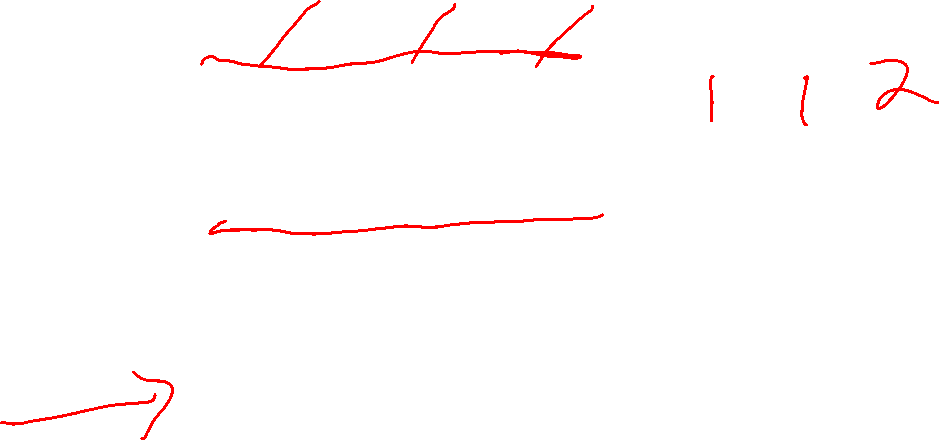 1 1 2